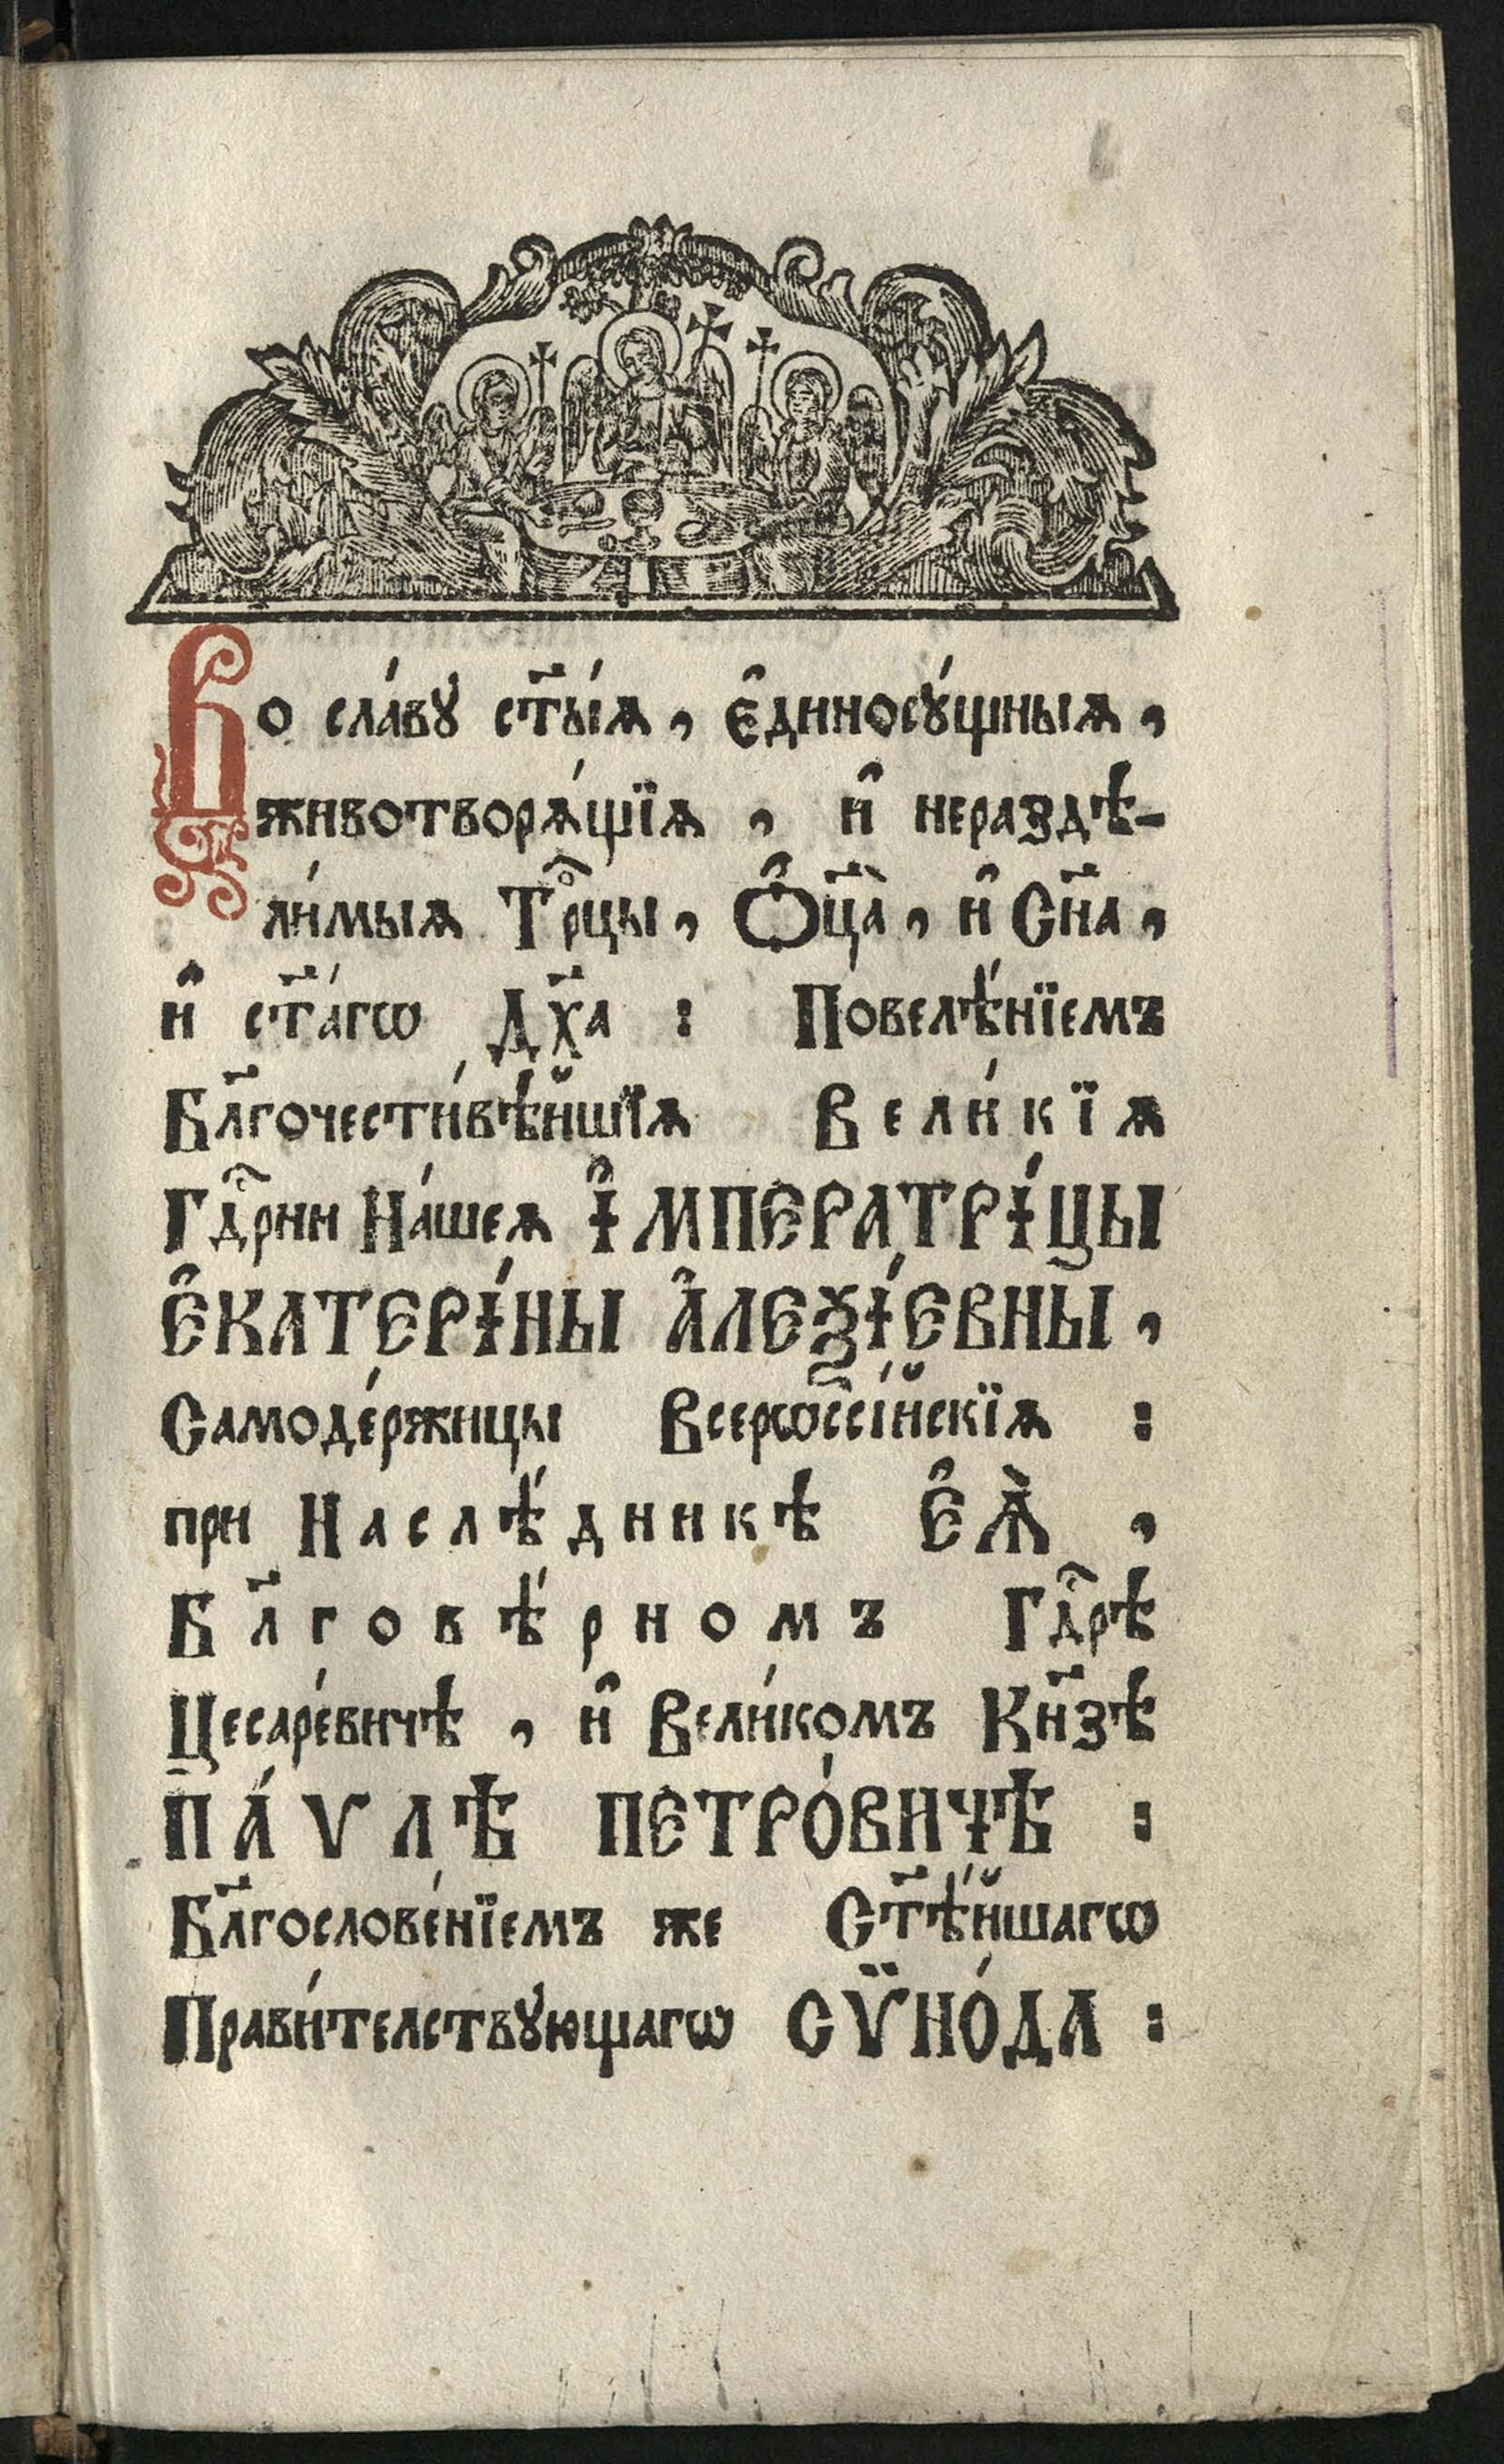 Во сла́вꙋ ст҃ы́ѧ, є҆диносꙋ́щныѧ,
животворѧ́щїѧ, и҆ нераздѣ-
ли́мыѧ Трⷪ҇цы, Ѻ҆ц҃а̀, и҆ Сн҃а,
и҆ ст҃а́гѡ Дх҃а : Повелѣ́нїемъ
Бл҃гочести́вѣ́йшїѧ Вели́кїѧ
Гдⷭ҇рни На́шеѧ І҆МПЕРАТРІ́ЦЫ
Е҆КАТЕРІ́НЫ А҆ЛЕѮІ́ЕВНЫ,
Самоде́ржицы Всерѡссі́йскїѧ :
при Наслѣ́дникѣ Е҆Ѧ̀,
Бл҃говѣ́рномъ Гдⷭ҇рѣ
Цесаре́вичѣ, и҆ Вели́комъ Кн҃зѣ
ПА́ѴЛѢ ПЕТРО́ВИЧѢ :
Бл҃гослове́нїемъ же Ст҃ѣ́йшагѡ
Прави́телствꙋющагѡ СѶНО́ДА :